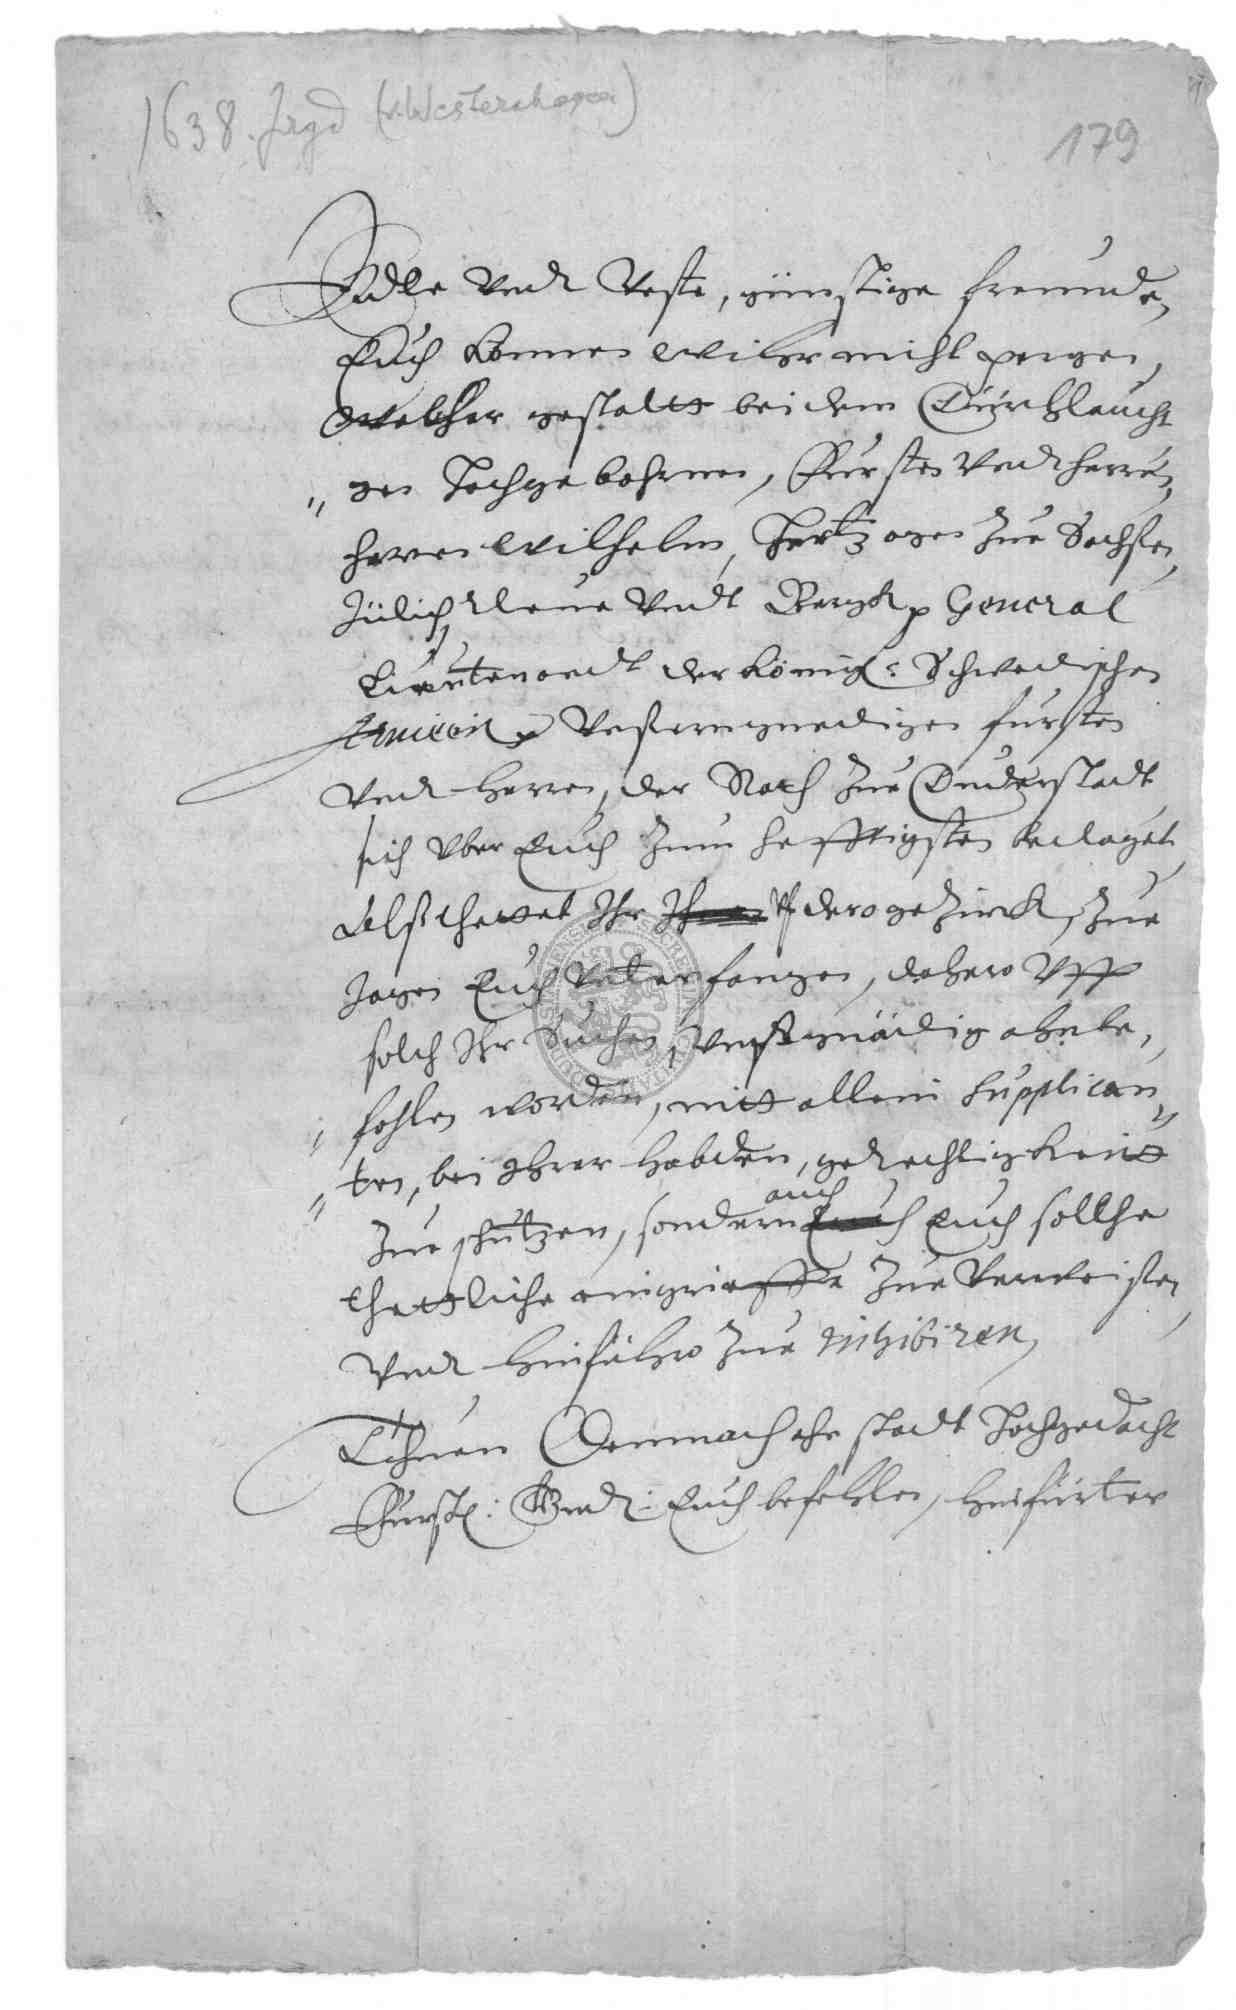 1638. Jagd (v. Westernhagen)
179
Edle Vndt Veste, günstige freunde,
Euch können wihr nicht pergen,
welcher gestaltt bei dem Dürchlaucht
"gen Hochgebohrnen, Fürsten Vndt herren,
herren Wilhelm, Hertzogen Zue Sachsen,
Jülich, Cleue Vndt Bergk p General
Lieutenandt der Königl: Schwedischen
Armeen p Vnserm gnedigen fürsten
Vndt Herren, der Rath Zue Duderstadt
sich Vber Euch Zum hefftigsten beclaget
Alß thettet Ihr Vf dero gezirck, Zue
Jagen Euch Vnterfangen, dahero Vff
solch Ihr Suchen, Vnß gnädig ahnbe,
"fohlen worden, nitt allein Supplican"
"ten, bei Ihrer habenden, gerechtigkeitt
Zue schützen, sondern auch Euch sollche
thettliche eingrieffe Zue Verweisen,
Vndt hinführo Zue inhibiren,
Thuen Demnach ahn stadt Hochgedacht
Fürstl: Gnd: Euch befehlen, hinfürter